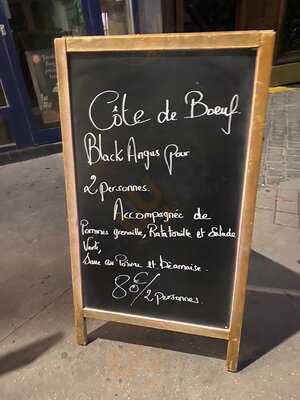 Côte de Boeuf
Black Angus pour
2 personnes.
Accompagnée de
Pommes grenaille, Ratatouille et Salade
Verte,
Sauce au Poivre et Béarnaise.
80€/2 personnes.